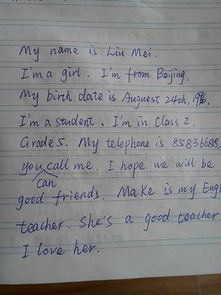 My name is Liu Mei.
I'm a girl. I'm from Beijing.
My birth date is Auguest 24th, 1996,
I'm a student. I'm in Class 2,
Grade 5. My telephone is 85836688,
you can call me. I hope we will be
good friends. Make is my Eng
teacher. She's a good teacher
I love her.